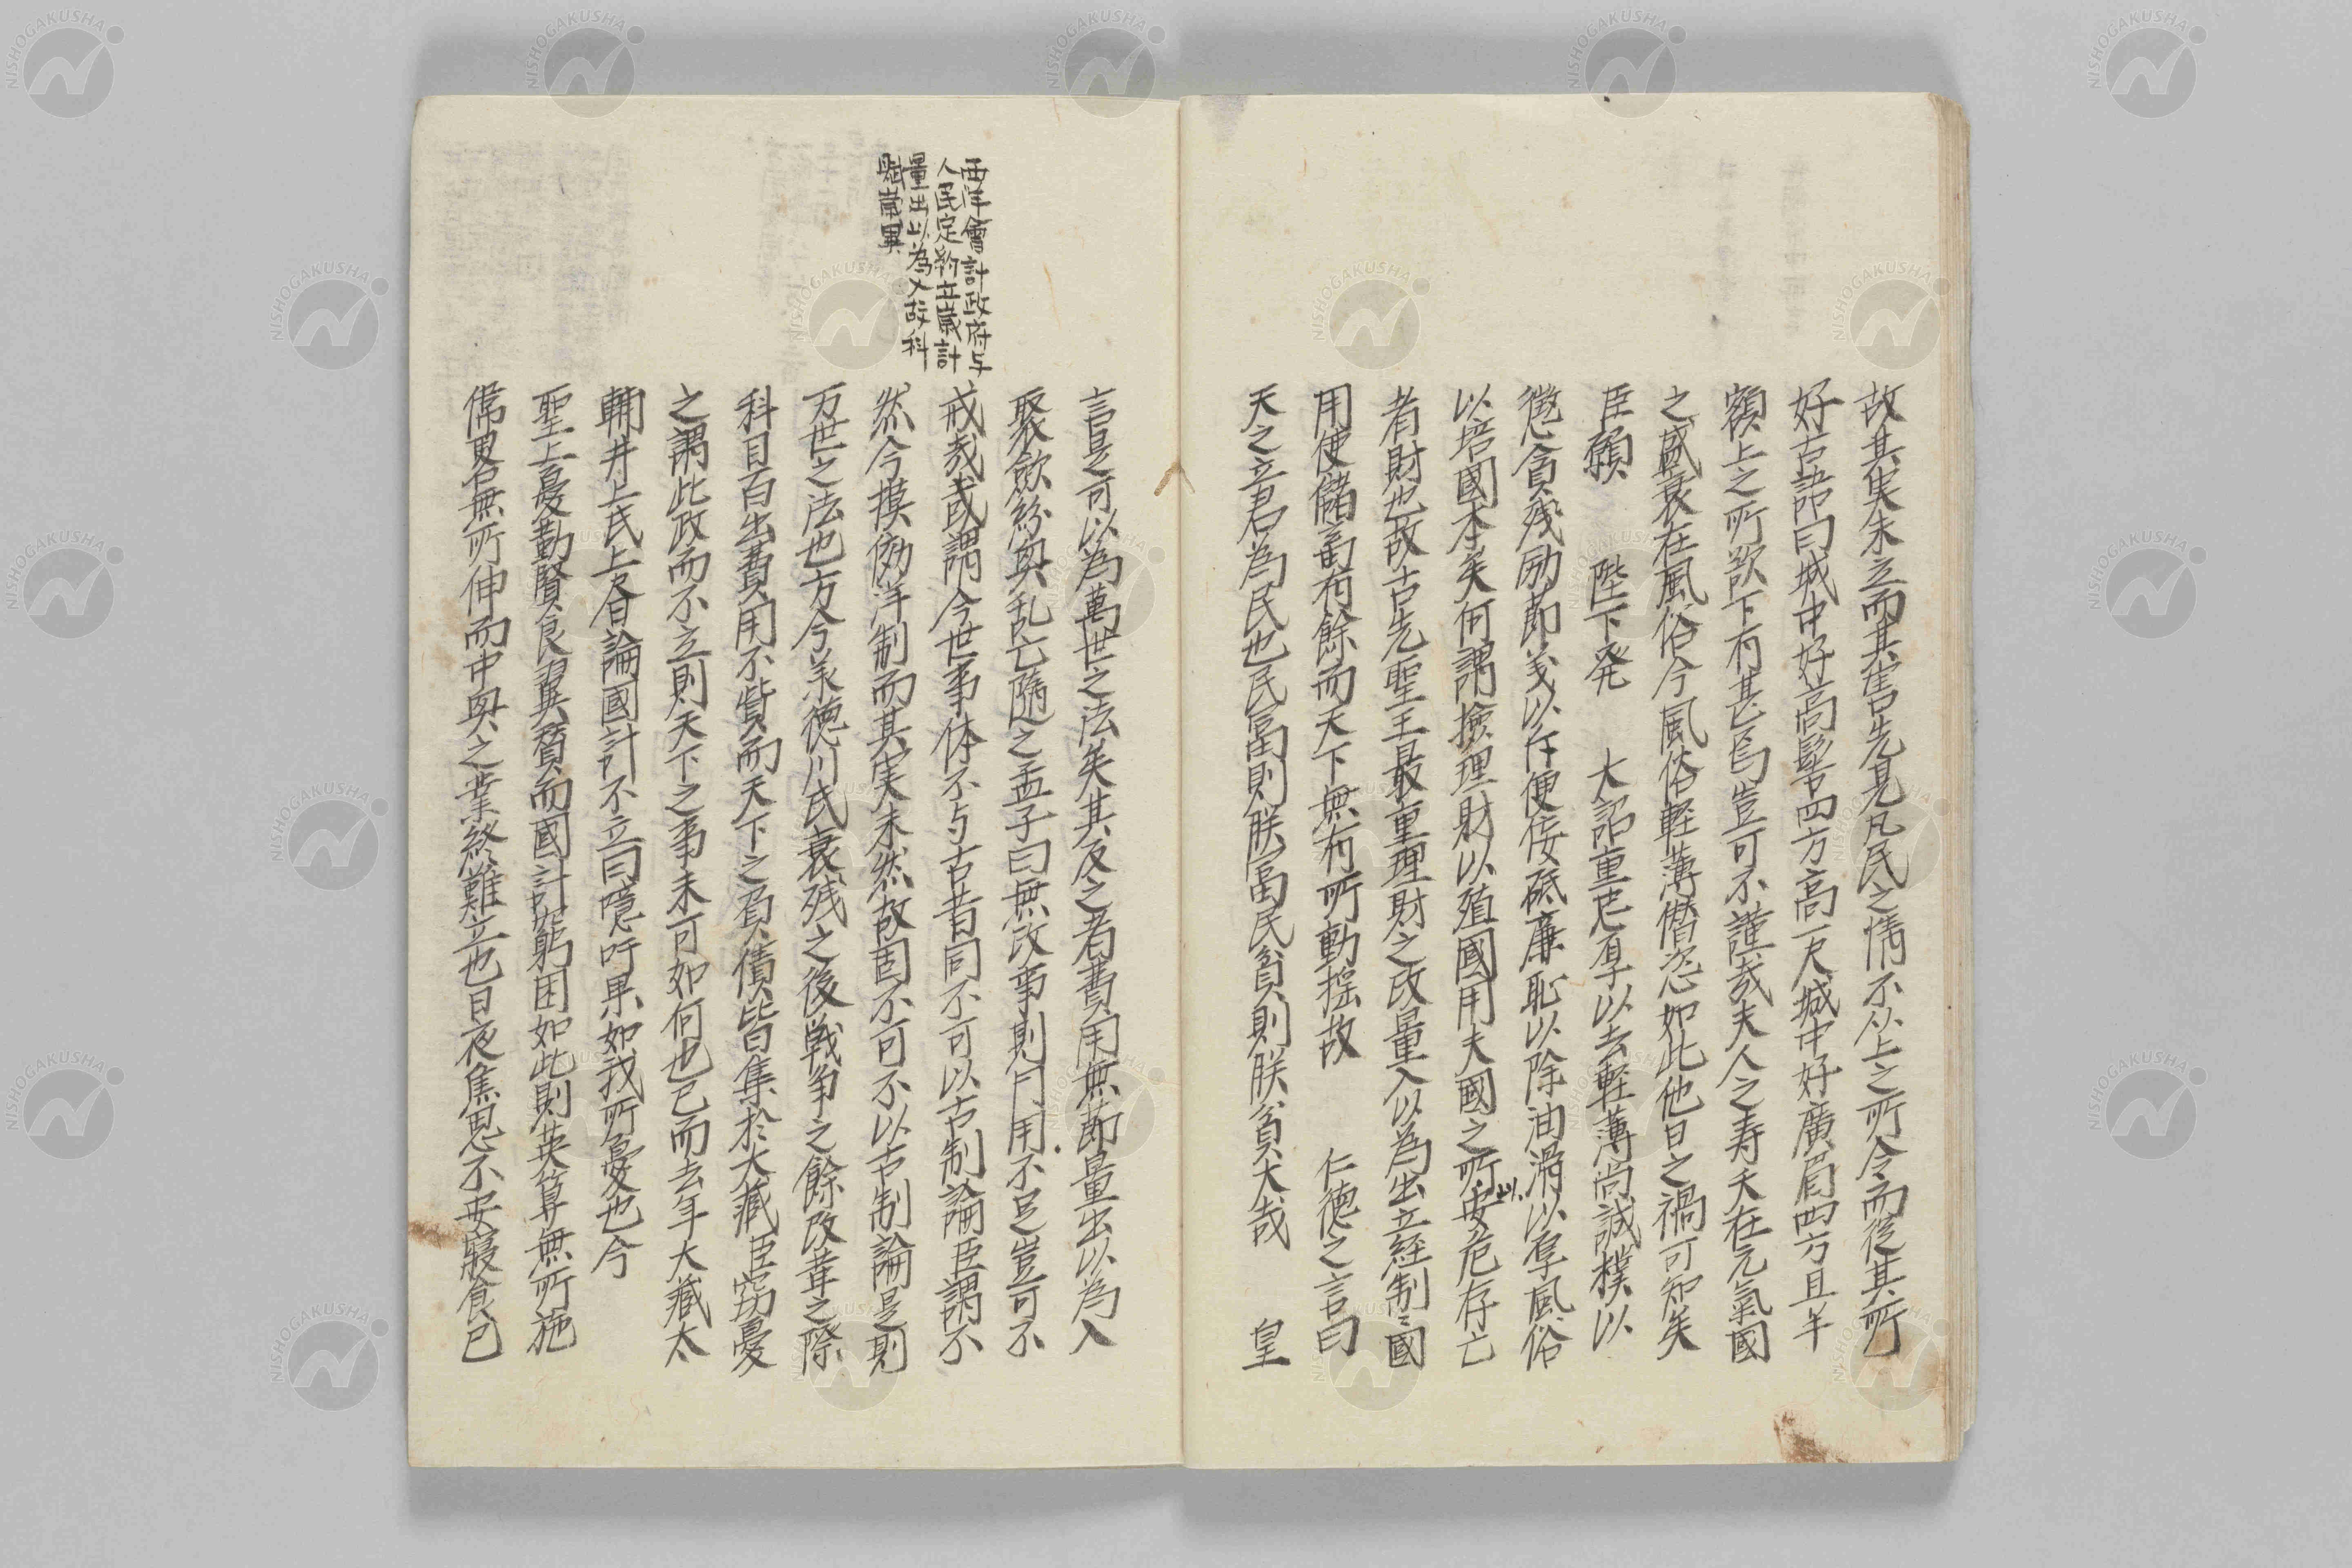 故其集未立而其害先見凡民之情不從上之所令而從其所
好古語曰城中好高髻四方高一尺城中好廣眉四方且半
額上之所欲下有甚焉豈可不謹哉夫人之寿夭在元氣國
之盛衰在風俗今風俗軽薄僭恣如此他日之禍可知矣
臣願 陛下発 大詔重忠厚以去軽薄尚誠樸以
懲貪残励節義以斥便佞砥廉恥以除油滑以厚風俗
以培國本矣何謂撿理財以殖國用夫國之所以安危存亡
者財也故古先聖王最重理財之政量入以為出立経制之國
用使儲畜有餘而天下無有所動揺故 仁徳之言曰
天之立君為民也民富則朕富民貧則朕貧大哉 皇
言是可以為萬世之法矣其反之者費用無節量出以為入
聚斂紛興乱亡隨之孟子曰無政事則財用不足豈可不
戒哉或謂今世事体不与古昔同不可以古制論臣謂不
然今摸倣洋制而其実未然故固不可不以古制論是則
万世之法也方今承徳川氏衰残之後戦争之餘改革之際
科目百出費用不貲而天下之負債皆集於大藏臣窃憂
之謂此政而不立則天下之事未可如何也已而去年大藏太
輔井上氏上書論國計不立曰噫吁果如我所憂也今
聖上憂勤賢良翼賛而國計窮困如此則英算無所施
偉略無所伸而中興之業終難立也日夜焦思不安寢食已
西洋會計政府与
人民定約立歳計
量出以為入故科
賦歳異
NISHOGAKUSHA